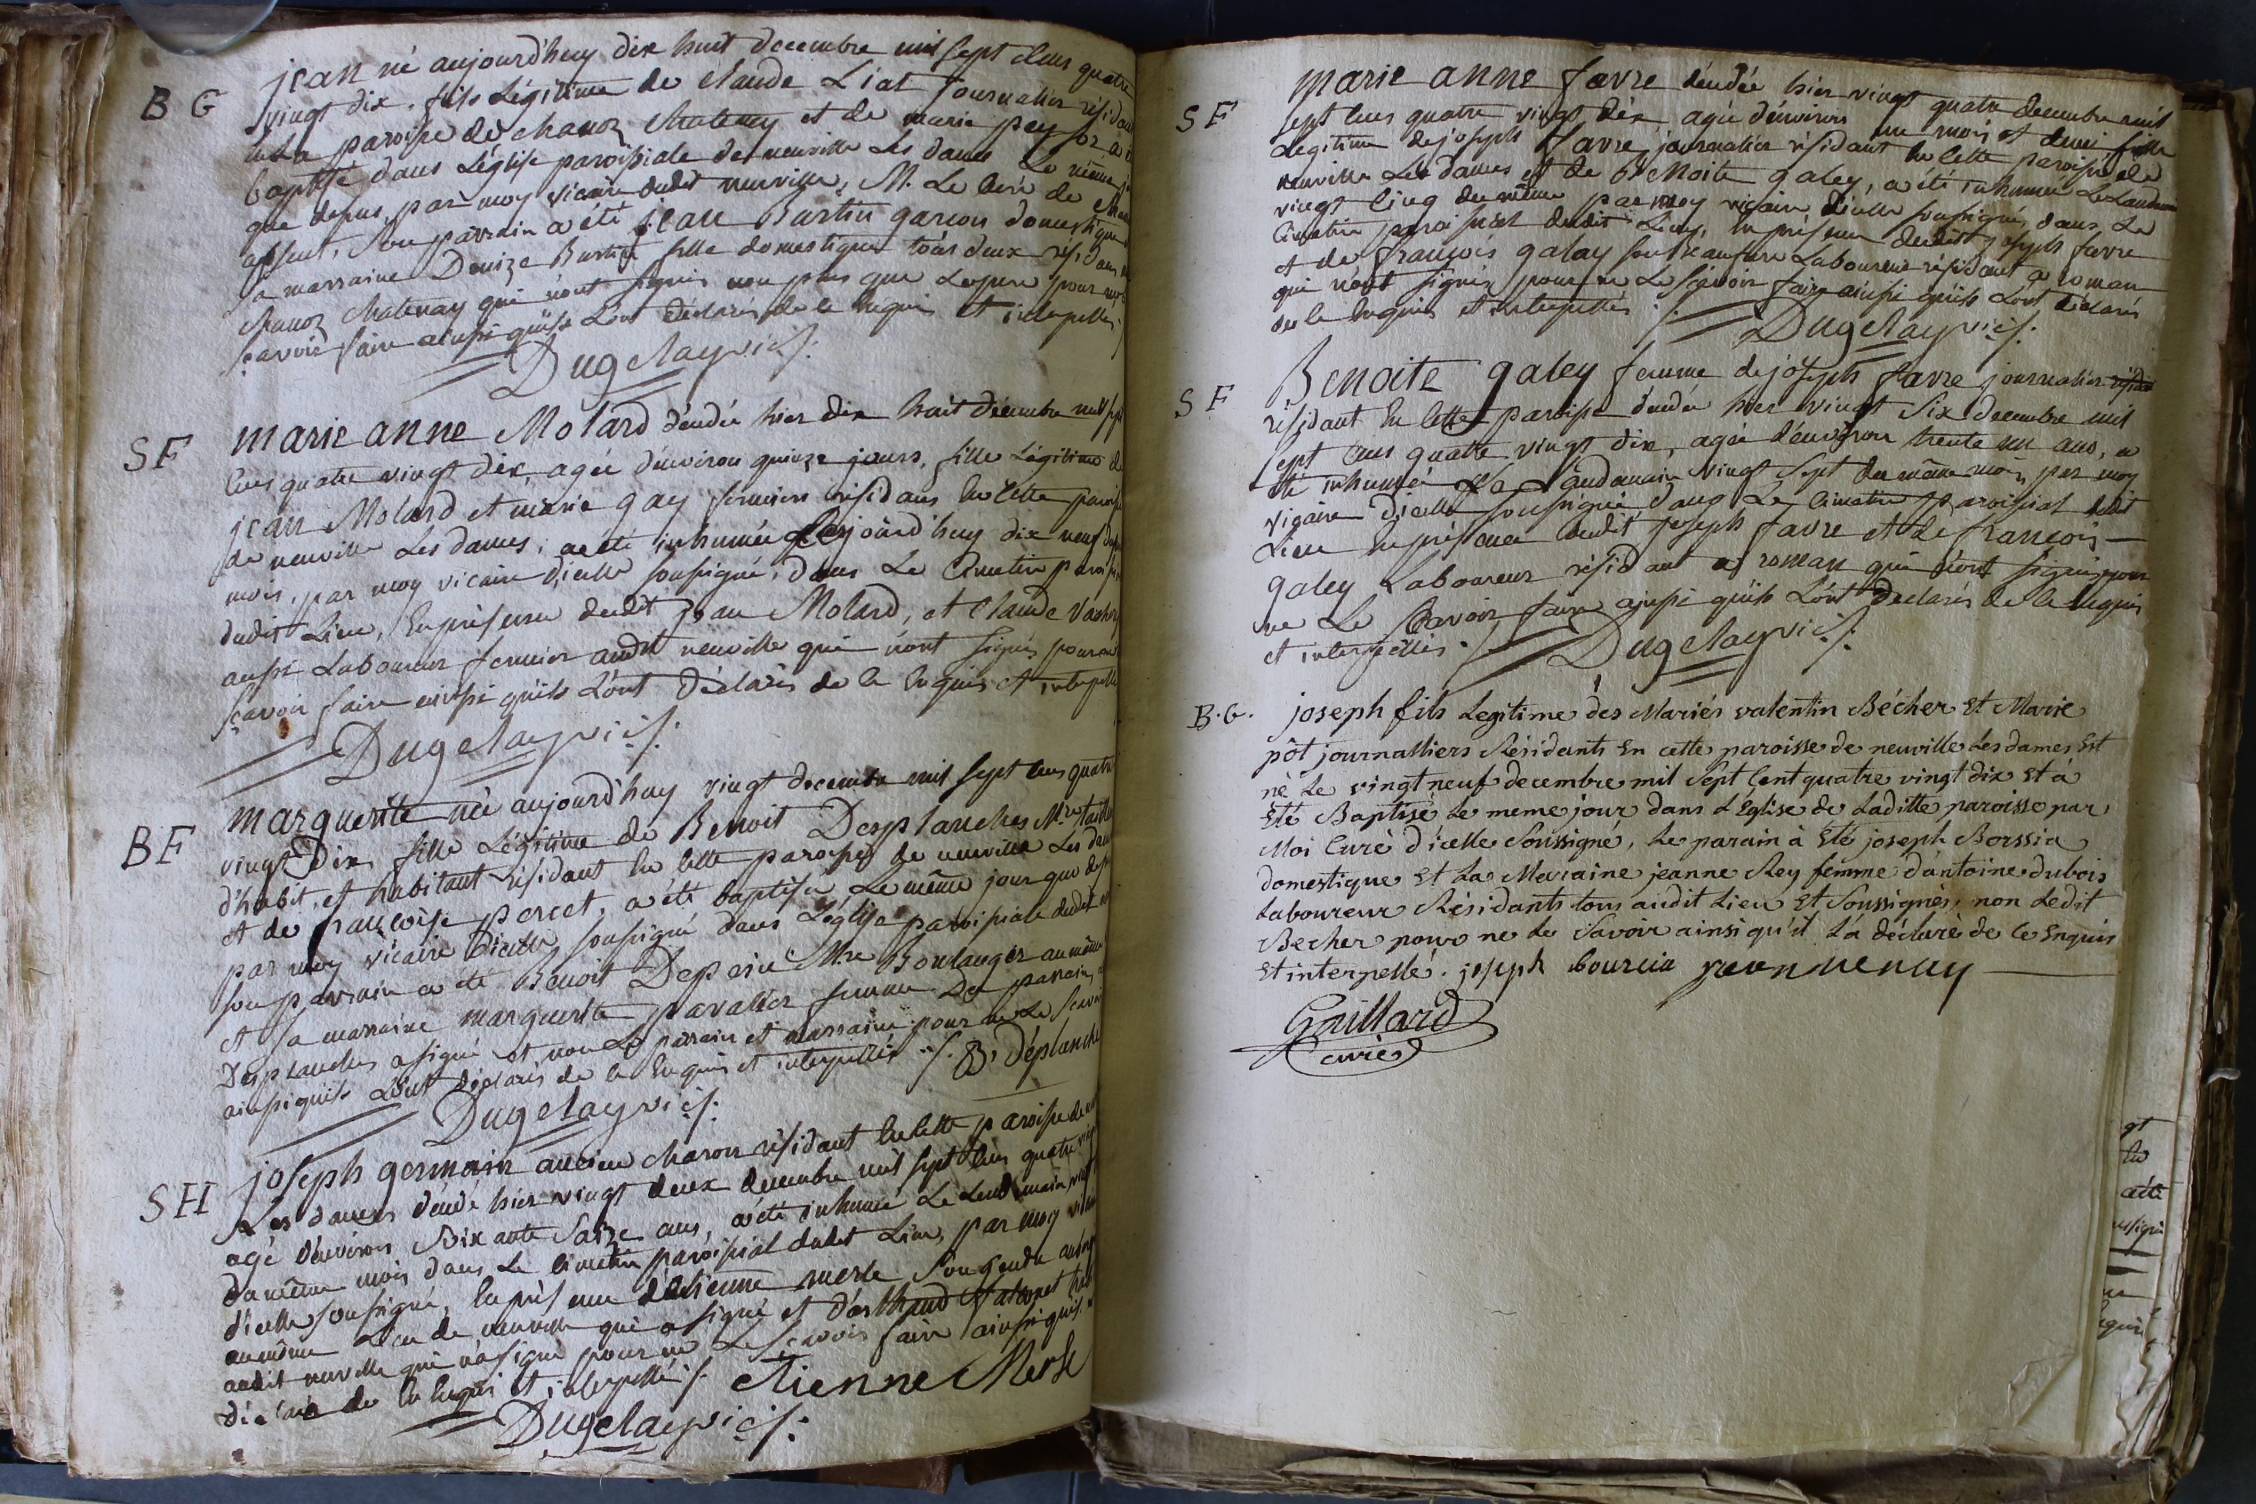 B G
jean né aujourd'huy dix huit decembre mil sept cens quatre
vingt dix, fils Légitime de claude Liat journalier résidant
en la paroisse de chanoz chatenay et de marie pey
baptisé dans L'église paroissiale de neuville Les dames Le même
que depuis, par moy vicaire dudit neuville, M. Le curé de
absent, Son parrain a été jean Burtin garcon domestique
Sa marraine Denize Burtin fille domestique tous deux
chanoz chatenay qui n'ont signés non plus que Le pere pour
scavoir faire ainsi qu'ils L'ont déclarés de ce enquis et interpellés
Dugelay vic.
SF
marie anne Molard décédée hier dix huit décembre mil sept
cens quatre vingt dix, agée d'environ quinze jours, fille Légitime de
jean Molard et marie gay fermiers résidans en cette paroisse
de neuville Les dames, a été inhumée aujourd'huy dix neuf
mois, par moy vicaire d'icelle soussigné, dans Le Cimetiere
dudit Lieu, En présence dudit jean Molard, et claude
aussi Laboureur fermier audit neuville qui n'ont signés pour ne
scavoir faire ainsi qu'ils L'ont déclarés de ce enquis et interpellés
Dugelay vic.
BF
marguerite née aujourd'huy vingt decembre mil sept cens quatre
vingt dix, fille Légitime de Benoit Desplanches Mre
d'habit, et habitant résidant en cette paroisse de neuville Les dames
et de françoise percet, a été baptisée Le même jour que
par moy vicaire d'icelle soussigné dans L'église paroissiale dudit
son parrain a été Benoit Mre Boulanger au même
et Sa marraine marguerite femme Du parrain,
Desplanches a signé et non Le parrain et marraine pour ne Le
ainsi qu'ils L'ont déclarés de ce enquis et interpellés B. Déplanche
Dugelay vic.
SH
joseph germain ancien charon résidant en cette paroisse de
Les dames décédé hier vingt deux decembre mil sept cens quatre
agé d'environ Soixante Saize ans, a été inhumé Le Lendemain
du même mois dans Le cimetiere paroissial dudit Lieu, par moy
d'icelle soussigné, En présence d'étienne merle Son gendre
au même Lieu de neuville qui a signé et
audit neuville qui n'a signé pour ne Le scavoir faire ainsi qu'il
déclaré de ce enquis et interpellé étienne Merle
Dugelay vic.
SF
marie anne favre décédée hier vingt quatre decembre mil
sept cens quatre vingt dix, agée d'environ un mois et demi, fille
Légitime de joseph favre journalier résidant en cette paroisse de
neuville Les dames et de Benoite galey, a été inhumée Le Landemain
vingt cinq du même par moy vicaire d'icelle soussigné, dans Le
Cimetiere paroissial dudit Lieu, En présence dudit joseph favre
et de françois galay Laboureur résidant a roman
qui n'ont signés pour ne Le scavoir faire ainsi qu'ils L'ont déclarés
de ce enquis et interpellés.
Dugelay vic.
SF
Benoite galey femme de joseph favre journalier
résidant en cette paroisse décédée hier vingt Six decembre mil
sept cens quatre vingt dix, agée d'environ trente un ans, a
été inhumée Le Landemain vingt Sept du même mois, par moy
vicaire d'icelle soussigné, dans Le cimetiere paroissial dudit
Lieu En présence dudit joseph favre et de françois
galey Laboureur résidant a roman qui n'ont signés pour
ne Le Scavoir faire ainsi qu'ils L'ont declarés de ce enquis
et interpellés.
Dugelay vic.
B.G.
joseph fils Legitime des Mariés valentin Bécher Et Marie
pôt journalliers Résidants En cette paroisse de neuville Les dames Est
né Le vingt neuf decembre mil Sept Cent quatre vingt dix Et à
Eté Baptisé Le meme jour dans L'Eglise de Laditte paroisse par
Moi Curé d'icelle Soussigné, Le parain à Eté joseph Borssia
domestique Et La Maraine jeanne Rey femme d'antoine dubois
Laboureur Résidants tous audit Lieu Et Soussignés, non Ledit
Becher pour ne Le Savoir ainsi qu'il L'a déclaré de Ce Enquis
Et interpellé. joseph bourcia
Guillard
curé